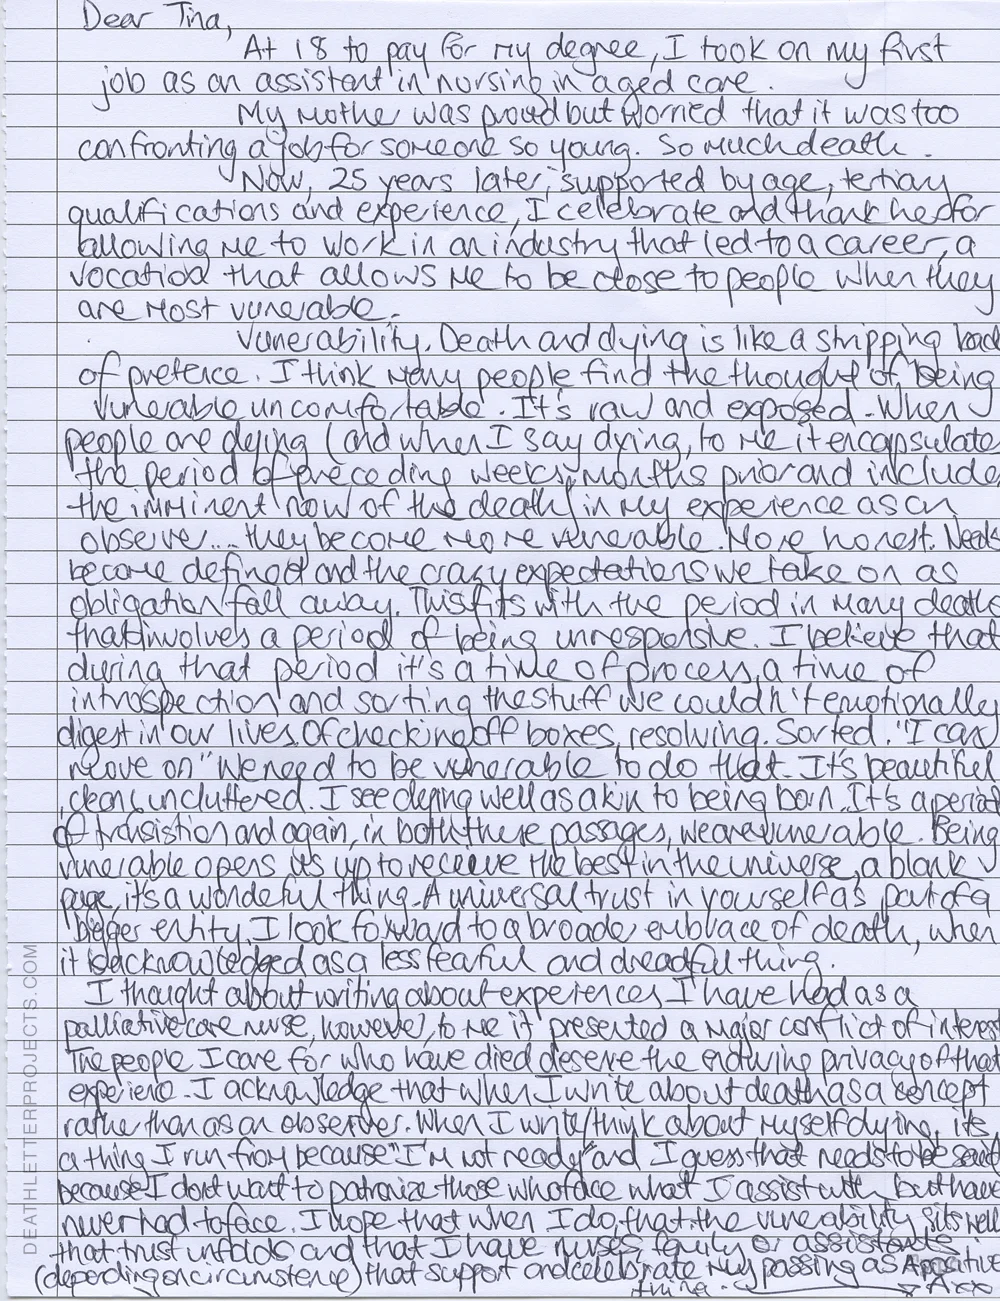 Dear Tina,
At 18 to pay for my degree, I took on my first
job as an assistent in nursing in aged care.
My mother was proud but worried that it was too
confronting a job for someone so young. So much death.
Now, 25 years later, supported by age, tertiary
qualifications and experience, I celebrate and thank her for
allowing me to work in an industry that led to a career, a
vocation that allows me to be close to people when they
are most vunerable.
Vunerability. Death and dying is like a stripping back
of pretence. I think many people find the thought of being
vunerable uncomfortable. It's raw and exposed. When
people are dying (and when I say dying, to me it encapsulates
the period of preceding weeks, months prior and includes
the imminent now of the death) in my experience as an
observer... they become more vunerable. More honest. Needs
become defined and the crazy expectations we take on as
obligation fall away. This fits with the period in many deaths
that involves a period of being unresponsive. I believe that
during that period it's a time of process, a time of
introspection and sorting the stuff we couldn't emotionally
digest in our lives. Of checking off boxes, resolving. Sorted. "I can
move on" We need to be vunerable to do that. It's beautiful,
clean, uncluttered. I see dying well as akin to being born. It's a period
of transistion and again, in both these passages, we are vunerable. Being
vunerable opens us up to receive the best in the universe, a blank
page, it's a wonderful thing. A universal trust in yourself as part of a
bigger entity. I look forward to a broader embrace of death, when
it is acknowledged as a less fearful and dreadful thing.
I thought about writing about experiences I have had as a
palliative care nurse, however, to me it presented a major conflict of interest
The people I care for who have died deserve the enduring privacy of that
experience. I acknowledge that when I write about death as a concept
rather than as an observer. When I write/think about myself dying, it's
a thing I run from because "I'm not ready" and I guess that needs to be said
because I don't want to patronize those who face what I assist with, but have
never had to face. I hope that when I do, that the vunerability sits well
that trust unfolds and that I have nurses family or assistants
(depending on circumstance) that support and celebrate my passing as A positive
thing. Axx
DEATHLETTERPROJECTS.COM